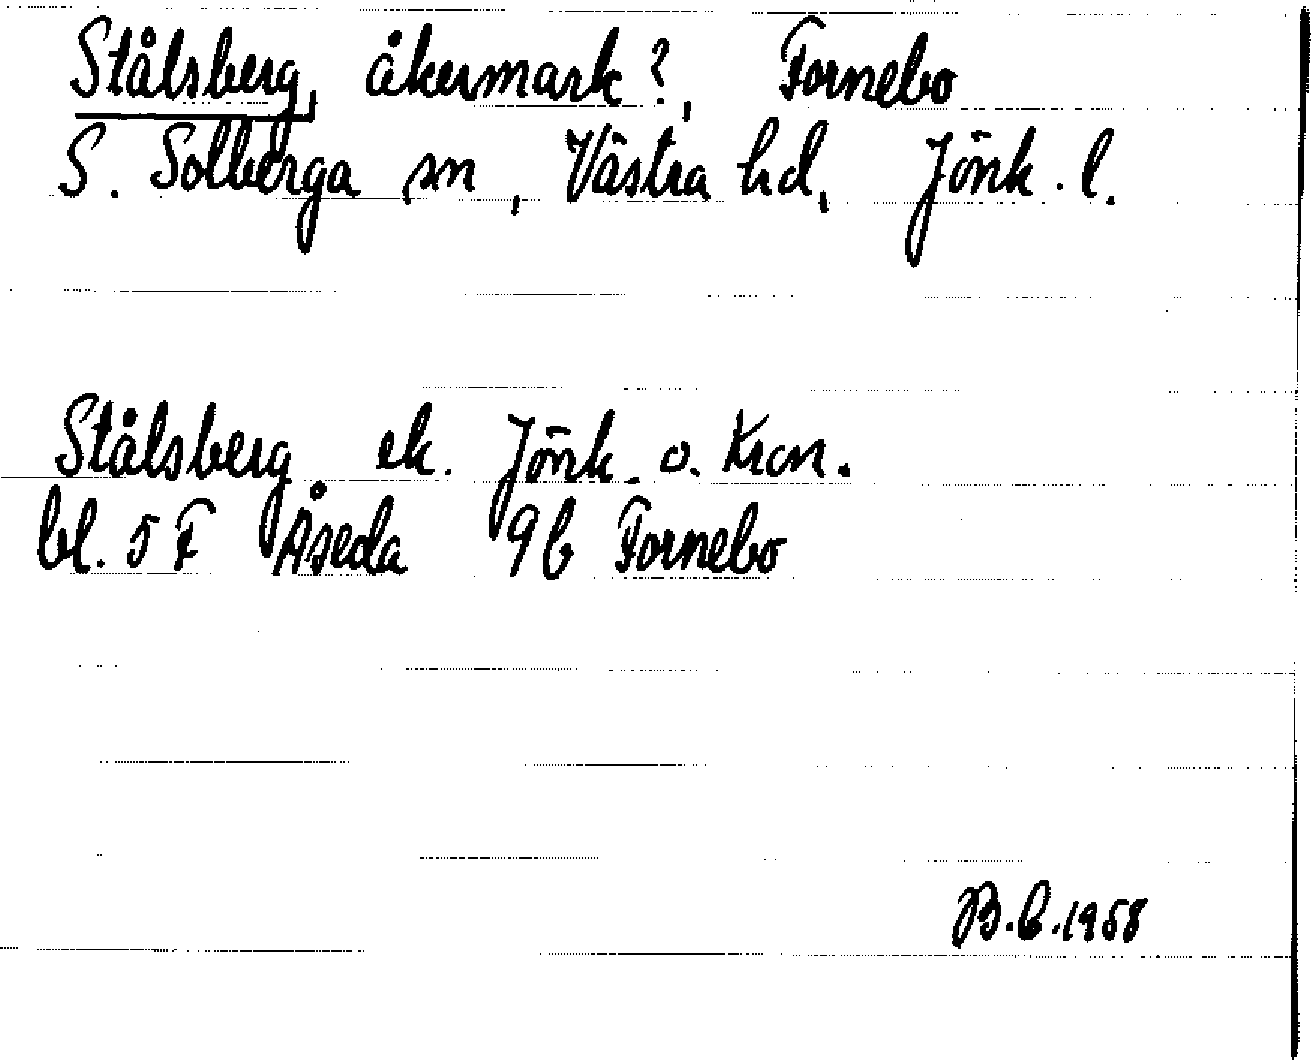 Stålsberg, åkermark?, Fornebo
S. Solberga sn, Västra hd, Jönk. l.
Stålsberg ek. Jönk. o. Kron.
bl. 5 F Åseda 9b Fornebo
B.C. 1958